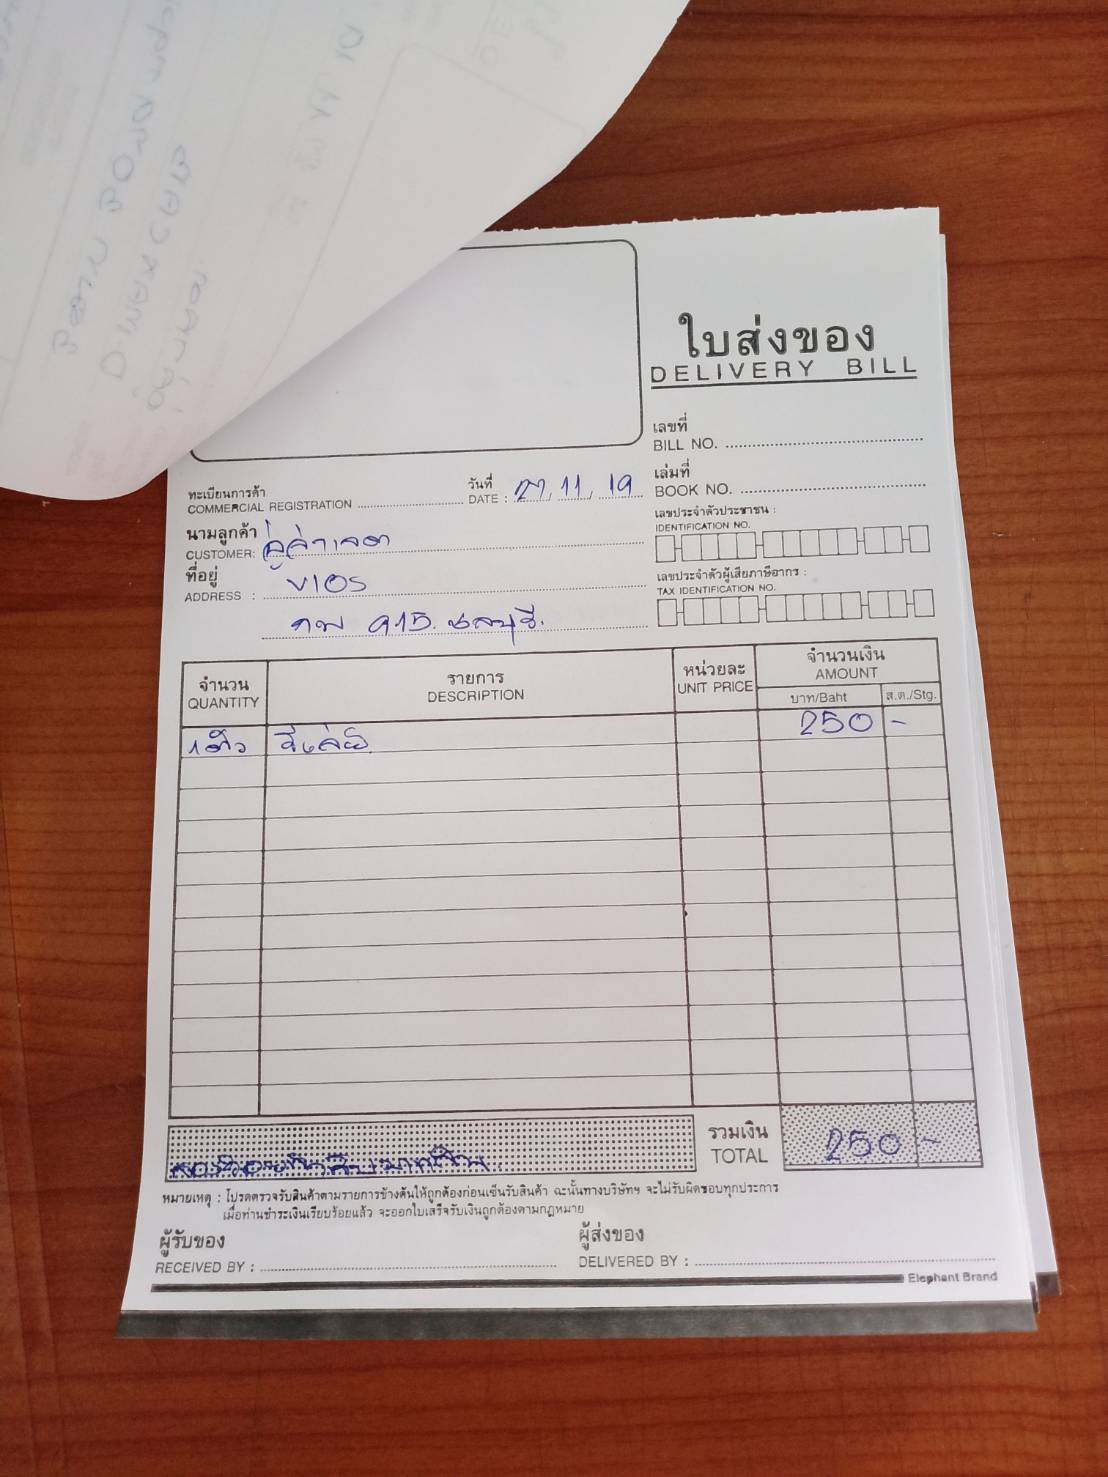 ใบส่งของ
DELIVERY BILL
เลขที่
BILL NO.
ทะเบียนการค้า
COMMERCIAL REGISTRATION
วันที่
DATE : 27, 11, 19
เล่มที่
BOOK NO.
นามลูกค้า
CUSTOMER:
เลขประจำตัวประชาชน :
IDENTIFICATION NO.
ที่อยู่
ADDRESS : VIOS
เลขประจำตัวผู้เสียภาษีอากร :
TAX IDENTIFICATION NO.
915. ชลบุรี.
จำนวน
QUANTITY
รายการ
DESCRIPTION
หน่วยละ
UNIT PRICE
จำนวนเงิน
AMOUNT
บาท/Baht ส.ต./Stg.
1 ตัว รีเลย์ 250 -
รวมเงิน
TOTAL 250 -
สองร้อยห้าสิบบาทถ้วน
หมายเหตุ : โปรดตรวจรับสินค้าตามรายการข้างต้นให้ถูกต้องก่อนเซ็นรับสินค้า ฉะนั้นทางบริษัทฯ จะไม่รับผิดชอบทุกประการ
เมื่อท่านชำระเงินเรียบร้อยแล้ว จะออกใบเสร็จรับเงินถูกต้องตามกฎหมาย
ผู้รับของ
RECEIVED BY :
ผู้ส่งของ
DELIVERED BY :
Elephant Brand